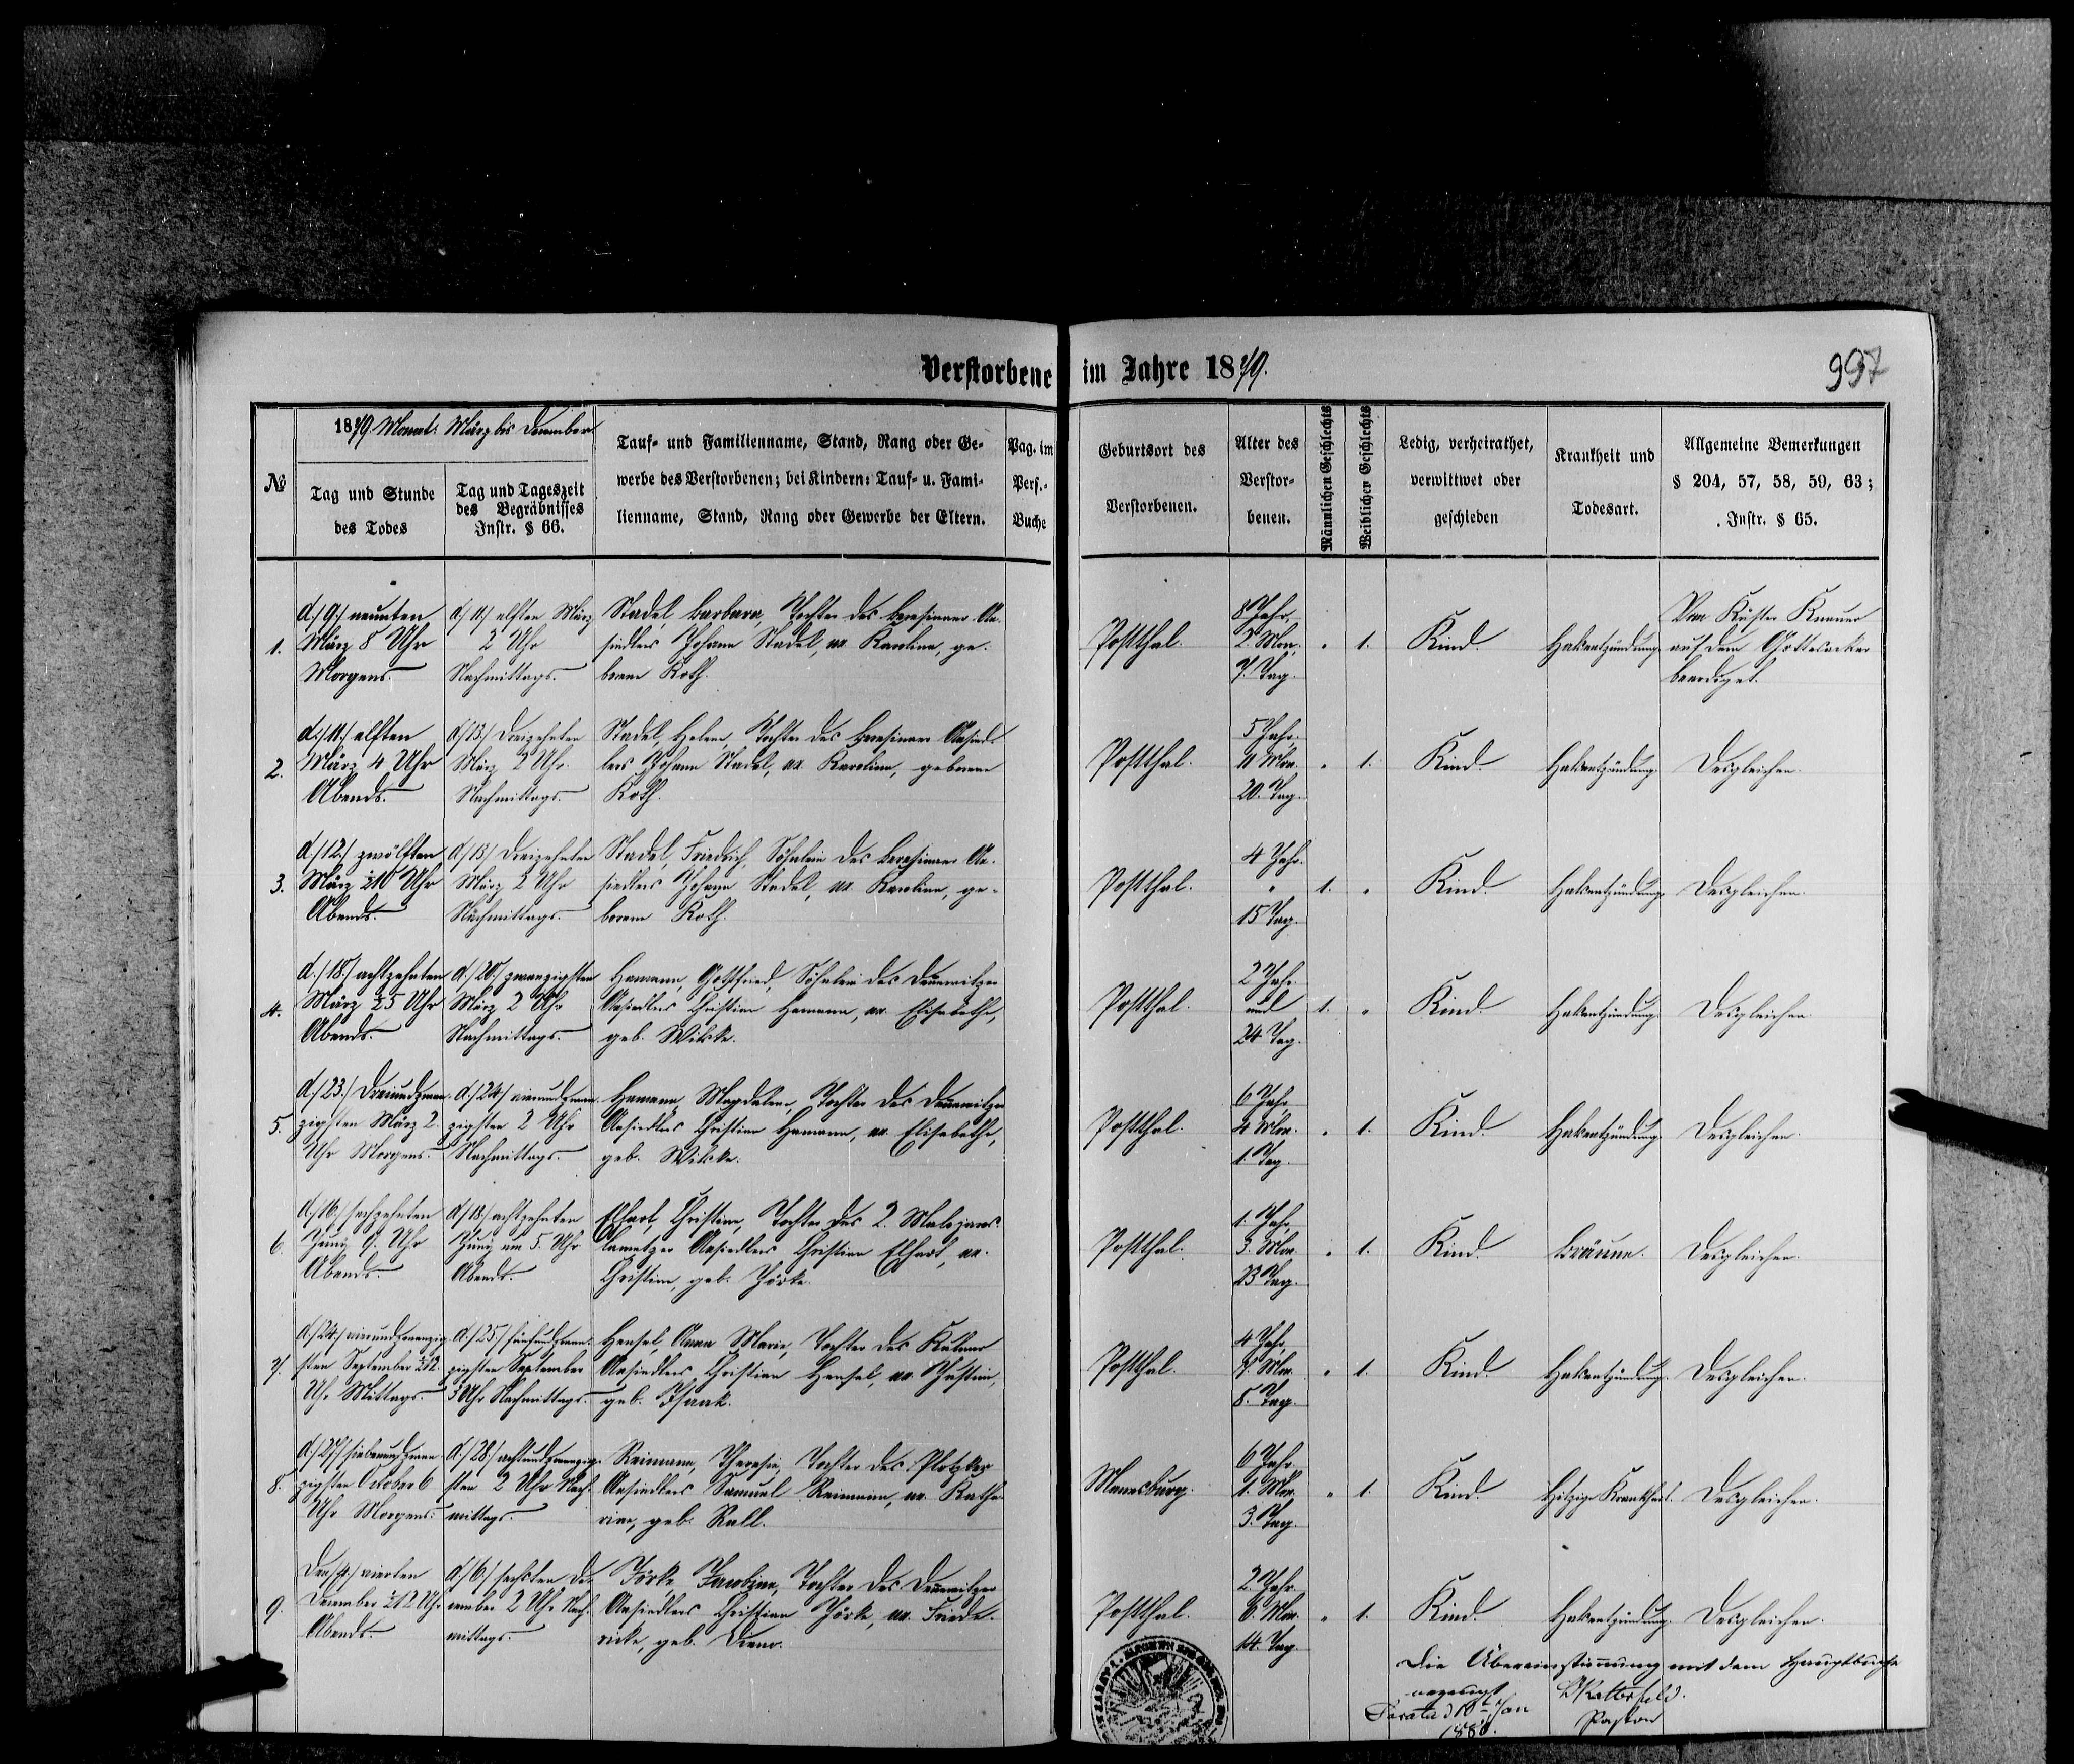 Verstorbene im Jahre 1879.
997
1879 Monat: März bis December
№
Tag und Stunde
des Todes
Tag und Tageszeit
des Begräbnisses
Instr. § 66.
Tauf- und Familienname, Stand, Rang oder Ge-
werbe des Verstorbenen; bei Kindern: Tauf- u. Fami-
lienname, Stand, Rang oder Gewerbe der Eltern.
Pag. im
Pers.-
Buche
Geburtsort des
Verstorbenen.
Alter des
Verstor-
benen.
Männlichen Geschlechts
Weiblichen Geschlechts
Ledig, verheirathet,
verwittwet oder
geschieden
Krankheit und
Todesart.
Allgemeine Bemerkungen
§ 204, 57, 58, 59, 63;
Instr. § 65.
1.
d./9./ neunten
März 8 Uhr
Morgens.
d./11./ elften März
2 Uhr
Nachmittags.
Stadel, Barbara, Tochter des Beresinaer An-
siedlers Johann Stadel, ux. Karolina, ge-
borene Roth.
Postthal.
8 Jahr,
2. Mon.
7. Tag.
" 1.
Kind.
Halsentzündung.
Vom Küster Knauer
auf dem Gottesacker
beerdiget.
2.
d./11./ elften
März 4 Uhr
Abends.
d./13/ dreizehnten
März 2 Uhr.
Nachmittags.
Stadel, Helena, Tochter des Beresinaer Ansied-
lers Johann Stadel, ux. Karolina, geborene
Roth.
Postthal.
5 Jahr.
11 Mon.
20. Tag.
" 1.
Kind.
Halsentzündung.
Desgleichen.
3.
d./12./ zwölften
März ½10 Uhr
Abends.
d./13/ dreizehnten
März 2 Uhr
Nachmittags.
Stadel, Friedrich, Söhnlein des Beresinaer An-
siedlers Johann Stadel, ux. Karolina, ge-
borene Roth.
Postthal.
4 Jahr.
"
15 Tag.
1. "
Kind.
Halsentzündung.
Desgleichen.
4.
d./18./ achtzehnten
März ½5 Uhr
Abends.
d./20./ zwanzigsten
März 2 Uhr
Nachmittags.
Hamann, Gottfried, Söhnlein des Dennewitzer
Ansiedlers Christian Hamann, ux. Elisabetha,
geb. Wilske.
Postthal.
2 Jahr.
und
24 Tag.
1. "
Kind.
Halsentzündung.
Desgleichen.
5.
d./23./ dreiundzwan-
zigsten März 2.
Uhr Morgens.
d./24/ vierundzwan-
zigsten 2 Uhr
Nachmittags.
Hamann, Magdalena, Tochter des Dennewitzer
Ansiedlers Christian Hamann, ux. Elisabetha,
geb. Wilske.
Postthal.
6 Jahr
11 Mon.
1. Tag.
" 1.
Kind.
Halsentzündung.
Desgleichen.
6.
d./16./ sechzehnten
Juny 9. Uhr
Abends.
d./18./ achtzehnten
Juny um 5. Uhr
Abends.
Christina, Tochter des 2. Malojaros-
lawetzer Ansiedlers Christian
Christina, geb. Jörke.
Postthal.
1. Jahr,
3. Mon.
23 Tag.
" 1.
Kind.
Bräune.
Desgleichen.
7.
d./24/ vierundzwanzig-
sten September ½12.
Uhr Mittags.
d./25./ fünfundzwan-
zigsten September
3 Uhr Nachmittags.
Hensel, Anna Maria, Tochter des Kulmer
Ansiedlers Christian Hensel, ux. Justina,
geb.
Postthal.
4 Jahr,
7. Mon.
8. Tag.
" 1.
Kind.
Halsentzündung.
Desgleichen.
8.
d./27/ siebenundzwan-
zigsten October 6
Uhr Morgens.
d./28./ achtundzwanzig-
sten 2 Uhr Nach-
mittags.
Reimann, Theresia, Tochter des Plotzker
Ansiedlers Samuel Reimann, ux. Katha-
rina, geb. Rall.
Mannsburg.
6 Jahr
1. Mon.
3. Tag.
" 1.
Kind.
Hitzige Krankheit.
Desgleichen.
9.
Den /4./ vierten
December ½12 Uhr
Abends.
d./6./ sechsten De-
cember 2 Uhr Nach-
mittags.
Jörke, Jacobina, Tochter des Dennewitzer
Ansiedlers Christian Jörke, ux. Friede-
ricke, geb.
Postthal.
2. Jahr
6. Mon.
14. Tag.
" 1.
Kind.
Halsentzündung.
Desgleichen.
Die Übereinstimmung mit dem Hauptbuche
bezeugt
Sarata d 10ten Jan
1880.
Katterfeld.
Pastor